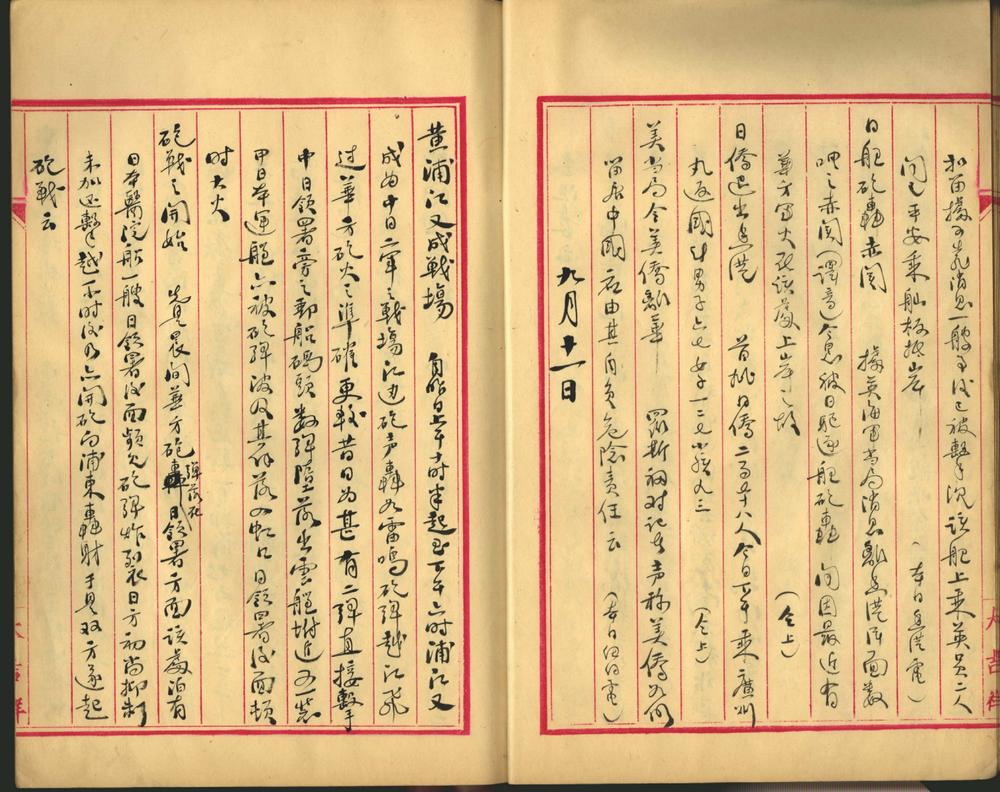 和留據可靠消息一般多後已被擊沉該艇上乘英員二人
聞已平安乘舢板抵岸 (本日香港電)
日艇砲轟赤 據英海軍當局消息離香港西面數
哩之赤 (譯音)今晨被日驅逐艇砲轟 因最近有
華方軍火在該處上岸之故 (仝上)
日僑退出香港 首批日僑二百七十八人今日下午乘廣州
丸返國 男子六七女子一二七小孩九三 (仝上)
美當局令美僑離華 羅斯福對記者声称美僑如仍
留居中國應由其自負危險責任云 (本日 電)
九月十一日
黄浦江又成戰場 自昨日上午十時半起至下午六時浦江又
成為中日二軍之戰場江边砲声轟如雷鳴砲彈越江飛
过華方砲火之準確更較昔日为甚有二彈直接擊
中日領署旁之郵船碼頭数彈墮落出雲艦附近又一裝
甲日本運艦亦被砲彈波及其餘落如虹口日領署後面頓
时大火
砲戰之開始 先是晨间華方砲彈落在日領署方面該處泊有
日本醫院船一艘日領署後面頻見砲彈炸裂日方初尚抑制
未加还擊越一小时後乃亦開砲向浦東轟射于是双方遂起
砲戰云
大吉祥